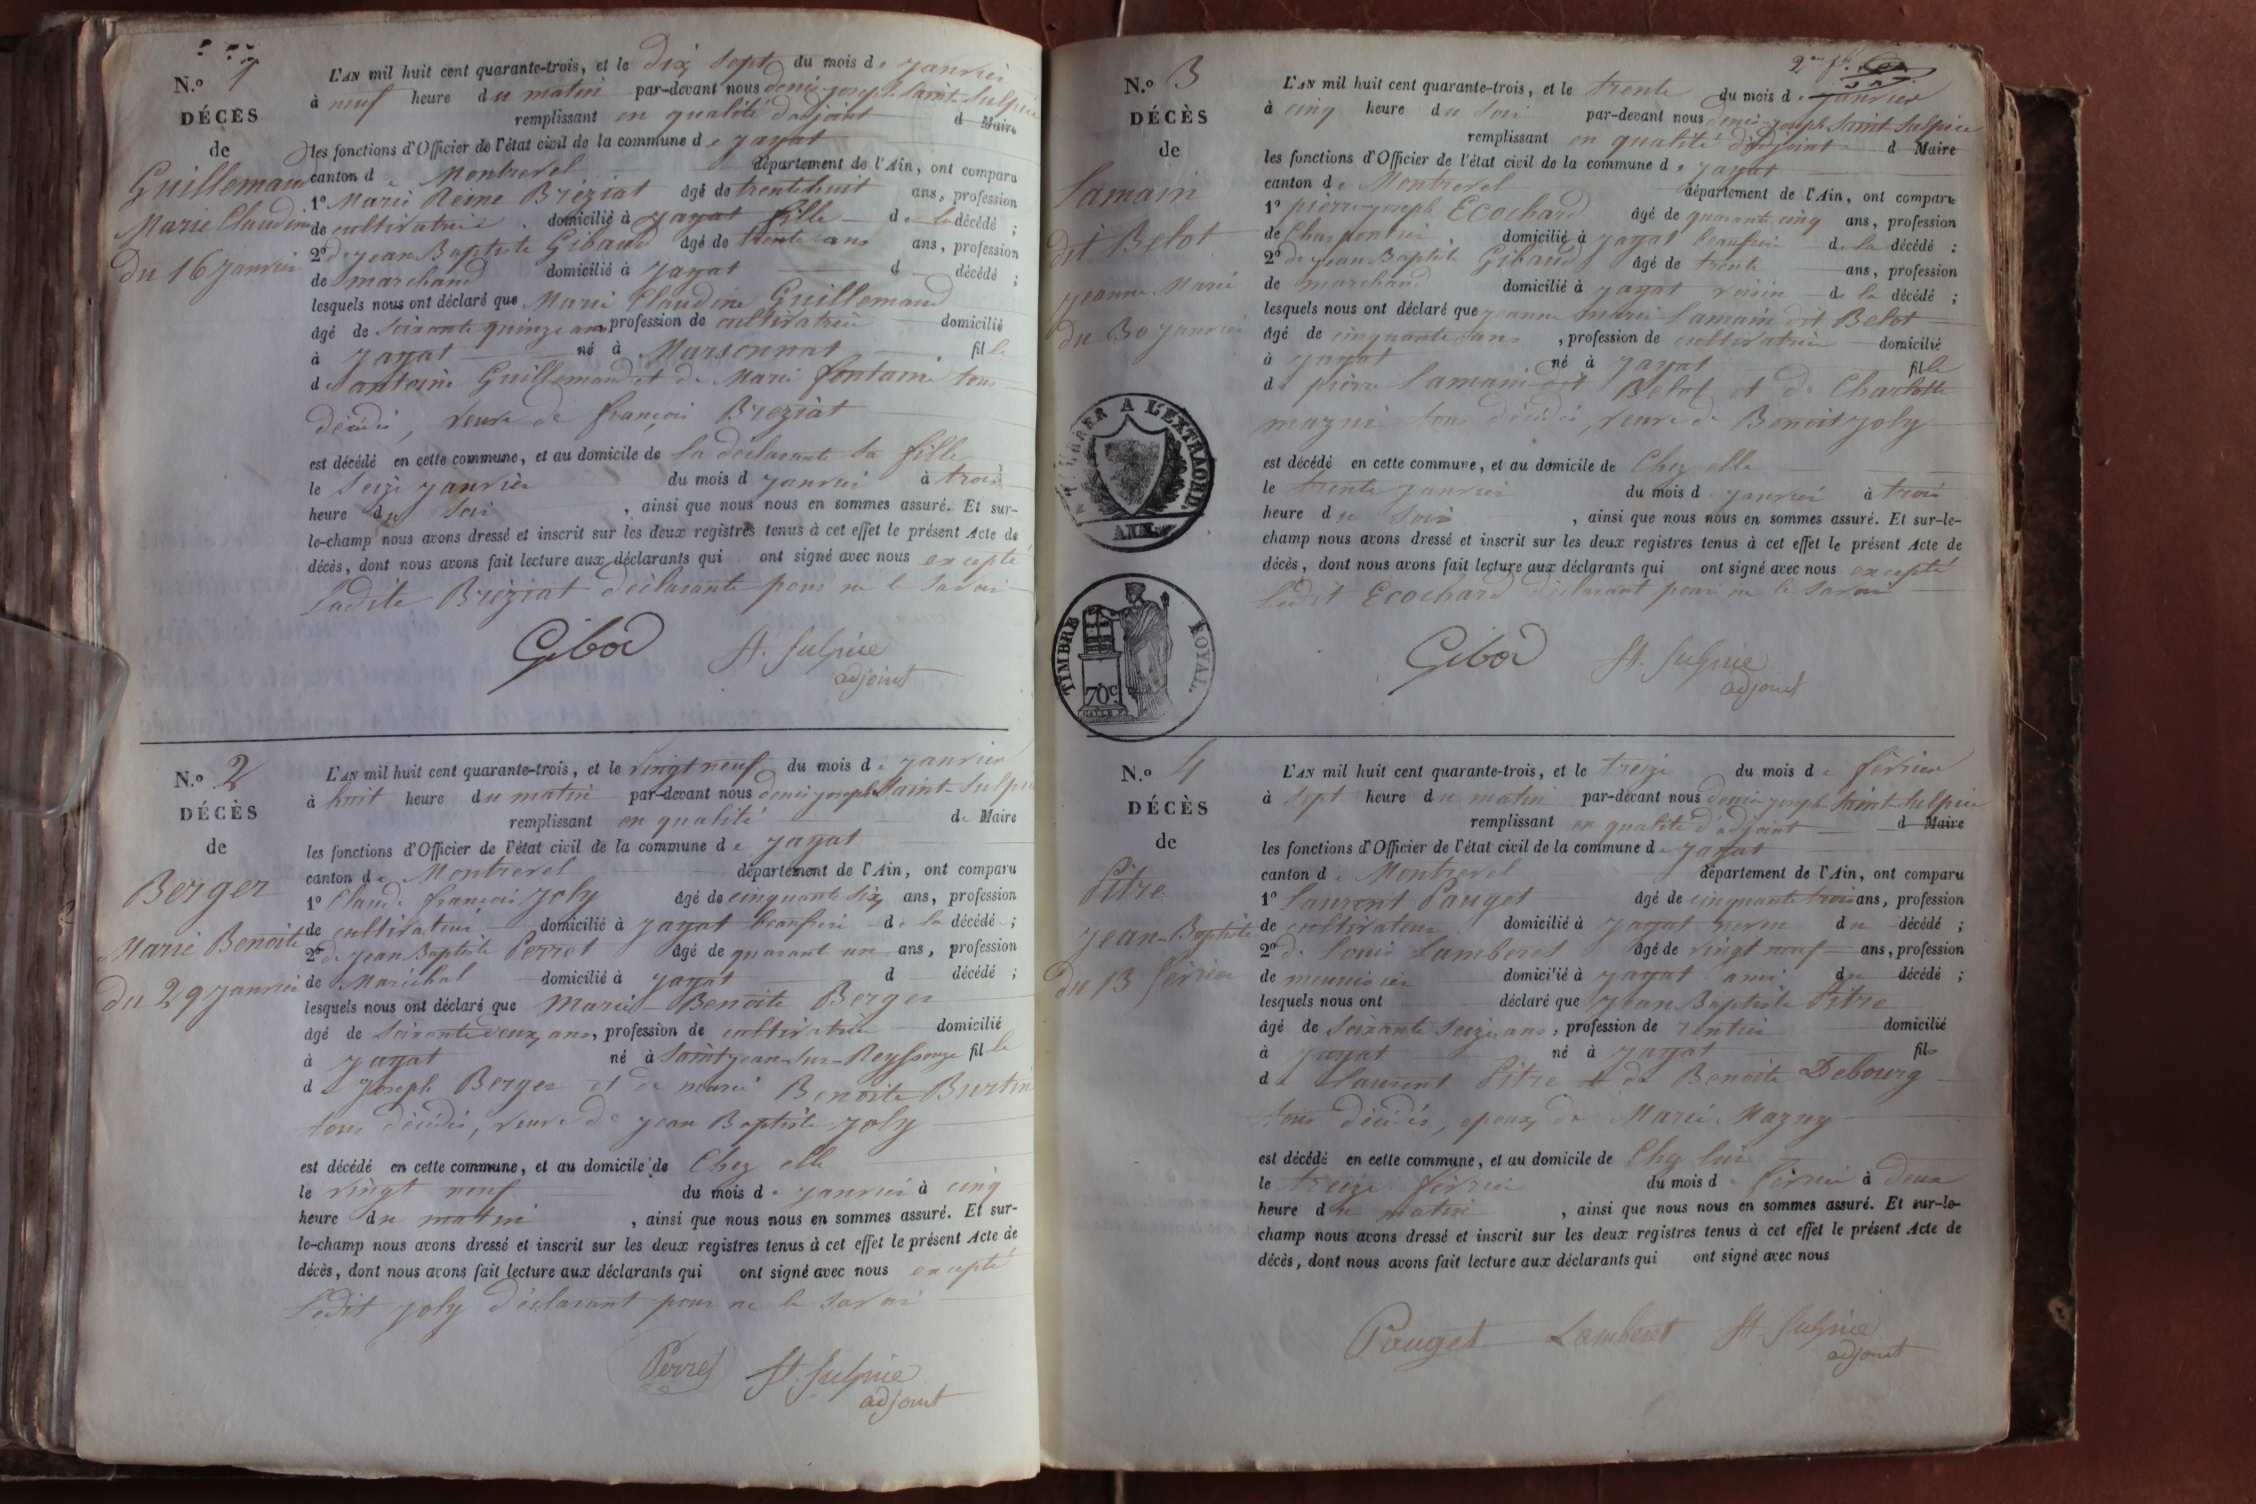 N.o 1
DÉCÈS
de
Guillemaud
Marie Claudine
du 16 janvier
L'AN mil huit cent quarante-trois, et le dix sept du mois de janvier
à neuf heure du matin par-devant nous denis joseph Saint-Sulpice
remplissant en qualité d'adjoint d Maire
les fonctions d'Officier de l'état civil de la commune de jayat
canton de Montrevel département de l'Ain, ont comparu
1o Marie Reine Bréziat âgé de trente huit ans, profession
de cultivatrice domicilié à jayat fille de la décédé ;
2o de jean Baptiste Gibaud âgé de trente ans ans, profession
de marchand domicilié à jayat d décédé ;
lesquels nous ont déclaré que Marie Claudine Guillemaud
âgé de soixante quinze ans profession de cultivatrice domicilié
à jayat né à Marsonnas fille
d antoine Guillemaud et de Marie fontaine tous
décédés, veuve de françois Breziat
est décédé en cette commune, et au domicile de la déclarante sa fille
le seize janvier du mois d janvier à trois
heure du soir , ainsi que nous nous en sommes assuré. Et sur-
le-champ nous avons dressé et inscrit sur les deux registres tenus à cet effet le présent Acte de
décès, dont nous avons fait lecture aux déclarants qui ont signé avec nous excepté
ladite Bréziat déclarante pour ne le savoir
Gibod St. Sulpice
adjoint
N.o 2
DÉCÈS
de
Berger
Marie Benoite
du 29 janvier
L'AN mil huit cent quarante-trois, et le vingt neuf du mois de janvier
à huit heure du matin par-devant nous denis joseph Saint-Sulpice
remplissant en qualité de Maire
les fonctions d'Officier de l'état civil de la commune de jayat
canton de Montrevel département de l'Ain, ont comparu
1o Claude françois Joly âgé de cinquante six ans, profession
de cultivateur domicilié à jayat beaufrere de la décédé ;
2o de jean Baptiste Perret âgé de quarant un ans, profession
de Maréchal domicilié à jayat d décédé ;
lesquels nous ont déclaré que Marie Benoite Berger
âgé de soixante deux ans, profession de cultivatrice domicilié
à jayat né à Saint jean-sur-Reyssouze fille
de Joseph Berger et de marie Benoite Burtin
tous décédés, veuve de jean Baptiste joly
est décédé en cette commune, et au domicile de Chez elle
le vingt neuf du mois de janvier à cinq
heure du matin , ainsi que nous nous en sommes assuré. Et sur-
le-champ nous avons dressé et inscrit sur les deux registres tenus à cet effet le présent Acte de
décès, dont nous avons fait lecture aux déclarants qui ont signé avec nous excepté
ledit joly déclarant pour ne le savoir
Perret St. Sulpice
adjoint
N.o 3
DÉCÈS
de
Lamain
dit Belot
jeanne Marie
du 30 janvier
L'AN mil huit cent quarante-trois, et le trente du mois de janvier
à cinq heure du soir par-devant nous denis joseph Saint Sulpice
remplissant en qualité d'adjoint d Maire
les fonctions d'Officier de l'état civil de la commune de jayat
canton de Montrevel département de l'Ain, ont comparu
1o pierre-joseph Ecochard âgé de quarante cinq ans, profession
de Charpentier domicilié à jayat beaufrere de la décédé ;
2o de jean Baptiste Gibaud âgé de trente ans, profession
de marchand domicilié à jayat voisin de la décédé ;
lesquels nous ont déclaré que jeanne marie Lamain dit Belot
âgé de cinquante ans , profession de cultivatrice domicilié
à jayat né à jayat fille
de pierre Lamain dit Belot et de Charlotte
mazuit tous décédés, veuve de Benoit joly
est décédé en cette commune, et au domicile de Chez elle
le trente janvier du mois d janvier à trois
heure du soir , ainsi que nous nous en sommes assuré. Et sur-le-
champ nous avons dressé et inscrit sur les deux registres tenus à cet effet le présent Acte de
décès, dont nous avons fait lecture aux déclarants qui ont signé avec nous excepté
ledit Ecochard déclarant pour ne le savoir
Gibod St. Sulpice
adjoint
A L'EXTRAORD.
AIN
TIMBRE ROYAL.
70c
N.o 4
DÉCÈS
de
Pitre
jean-Baptiste
du 13 février
L'AN mil huit cent quarante-trois, et le treize du mois de février
à sept heure du matin par-devant nous denis joseph Saint Sulpice
remplissant en qualité d'adjoint d Maire
les fonctions d'Officier de l'état civil de la commune de jayat
canton de Montrevel département de l'Ain, ont comparu
1o laurent Pauget âgé de cinquante trois ans, profession
de cultivateur domicilié à jayat neveu du décédé ;
2o de Louis Lamberet âgé de vingt neuf ans, profession
de meunicier domicilié à jayat ami du décédé ;
lesquels nous ont déclaré que jean Baptiste Pitre
âgé de soixante seize ans, profession de rentier domicilié
à jayat né à jayat fils
de laurent Pitre & de Benoite Debourg
tous décédés, epoux de Marie Mazuy
est décédé en cette commune, et au domicile de Chez lui
le treize février du mois d février à deux
heure du matin , ainsi que nous nous en sommes assuré. Et sur-le-
champ nous avons dressé et inscrit sur les deux registres tenus à cet effet le présent Acte de
décès, dont nous avons fait lecture aux déclarants qui ont signé avec nous
Pauget Lamberet St. Sulpice
adjoint